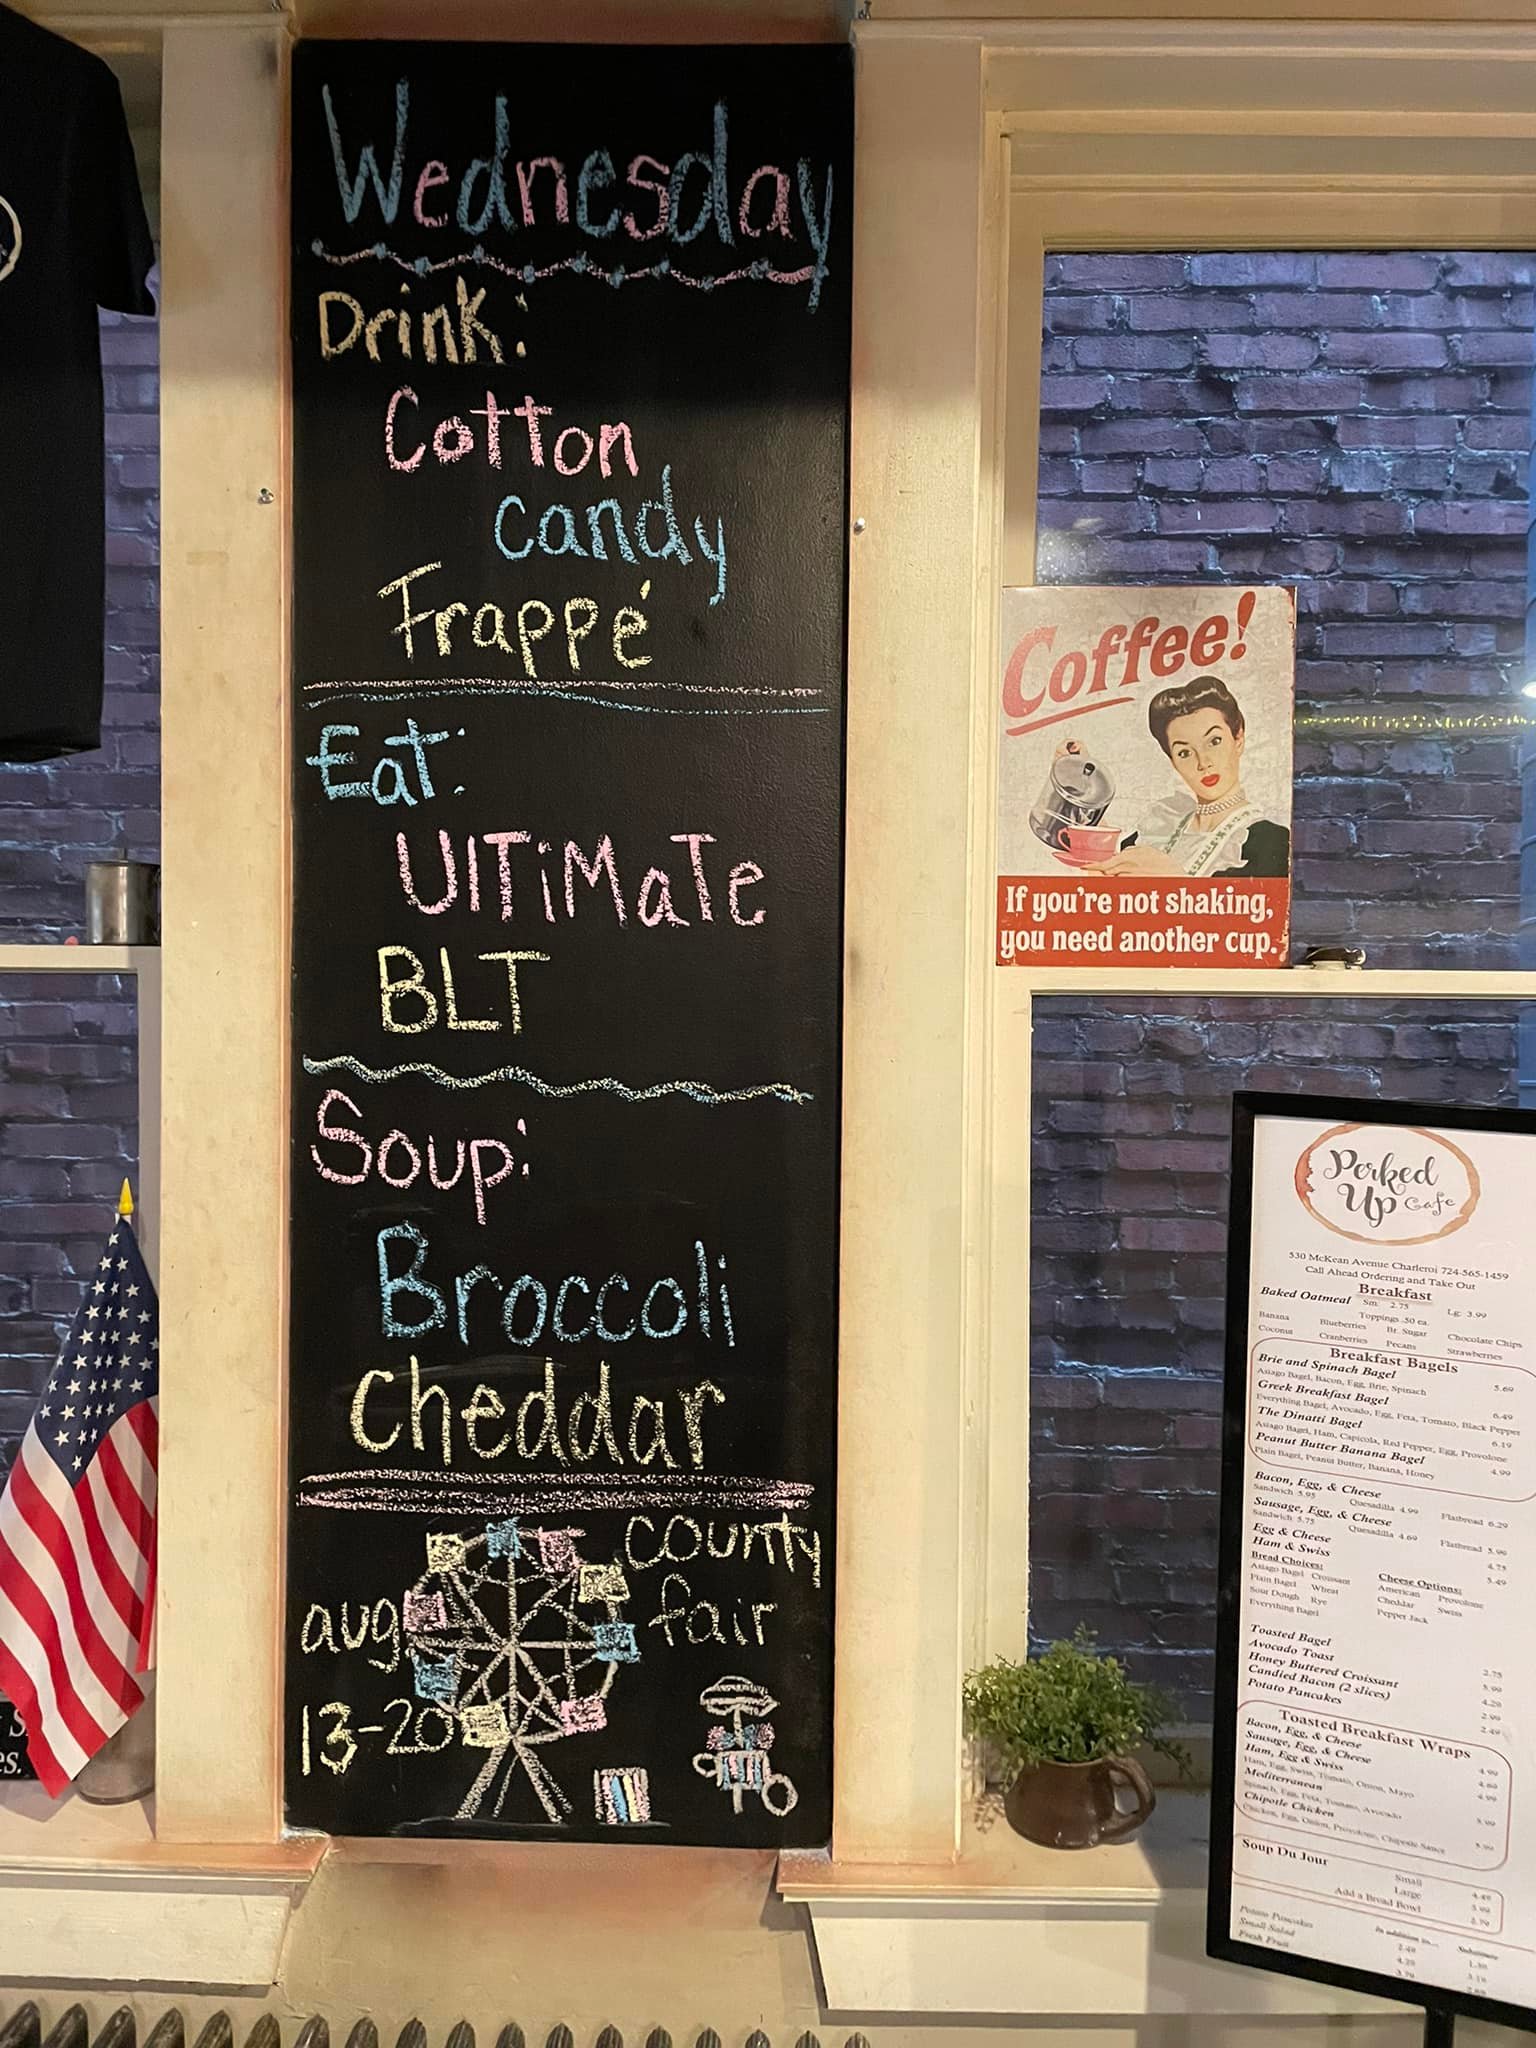 Wednesday
Drink:
Cotton
candy
Frappé
Eat:
UlTiMaTe
BLT
Soup:
Broccoli
Cheddar
county
fair
aug
13-20
Coffee!
If you're not shaking,
you need another cup.
Perked
Up Cafe
530 McKean Avenue Charleroi 724-565-1459
Call Ahead Ordering and Take Out
Breakfast
Baked Oatmeal Sm: 2.75 Lg: 3.99
Toppings .50 ea.
Banana Blueberries Br. Sugar Chocolate Chips
Coconut Cranberries Pecans Strawberries
Breakfast Bagels
Brie and Spinach Bagel 5.69
Asiago Bagel, Bacon, Egg, Brie, Spinach
Greek Breakfast Bagel 6.49
Everything Bagel, Avocado, Egg, Feta, Tomato, Black Pepper
The Dinatti Bagel 6.19
Asiago Bagel, Ham, Capicola, Red Pepper, Egg, Provolone
Peanut Butter Banana Bagel 4.99
Plain Bagel, Peanut Butter, Banana, Honey
Bacon, Egg, & Cheese
Sandwich 5.95 Quesadilla 4.99 Flatbread 6.29
Sausage, Egg, & Cheese
Sandwich 5.75 Quesadilla 4.69 Flatbread 5.99
Egg & Cheese 4.75
Ham & Swiss 5.49
Bread Choices: Cheese Options:
Asiago Bagel Croissant American Provolone
Plain Bagel Wheat Cheddar Swiss
Sour Dough Rye Pepper Jack
Everything Bagel
Toasted Bagel 2.75
Avocado Toast 5.99
Honey Buttered Croissant 4.29
Candied Bacon (2 slices) 2.99
Potato Pancakes 2.49
Toasted Breakfast Wraps
Bacon, Egg, & Cheese 4.99
Sausage, Egg, & Cheese 4.69
Ham, Egg & Swiss 4.99
Ham, Egg, Swiss, Tomato, Onion, Mayo
Mediterranean 5.99
Spinach, Egg, Feta, Tomato, Avocado
Chipotle Chicken 5.99
Chicken, Egg, Onion, Provolone, Chipotle Sauce
Soup Du Jour
Small 4.49
Large 5.99
Add a Bread Bowl 2.79
In addition to... Substitute
Potato Pancakes 2.49
Small Salad 4.29
Fresh Fruit 3.79